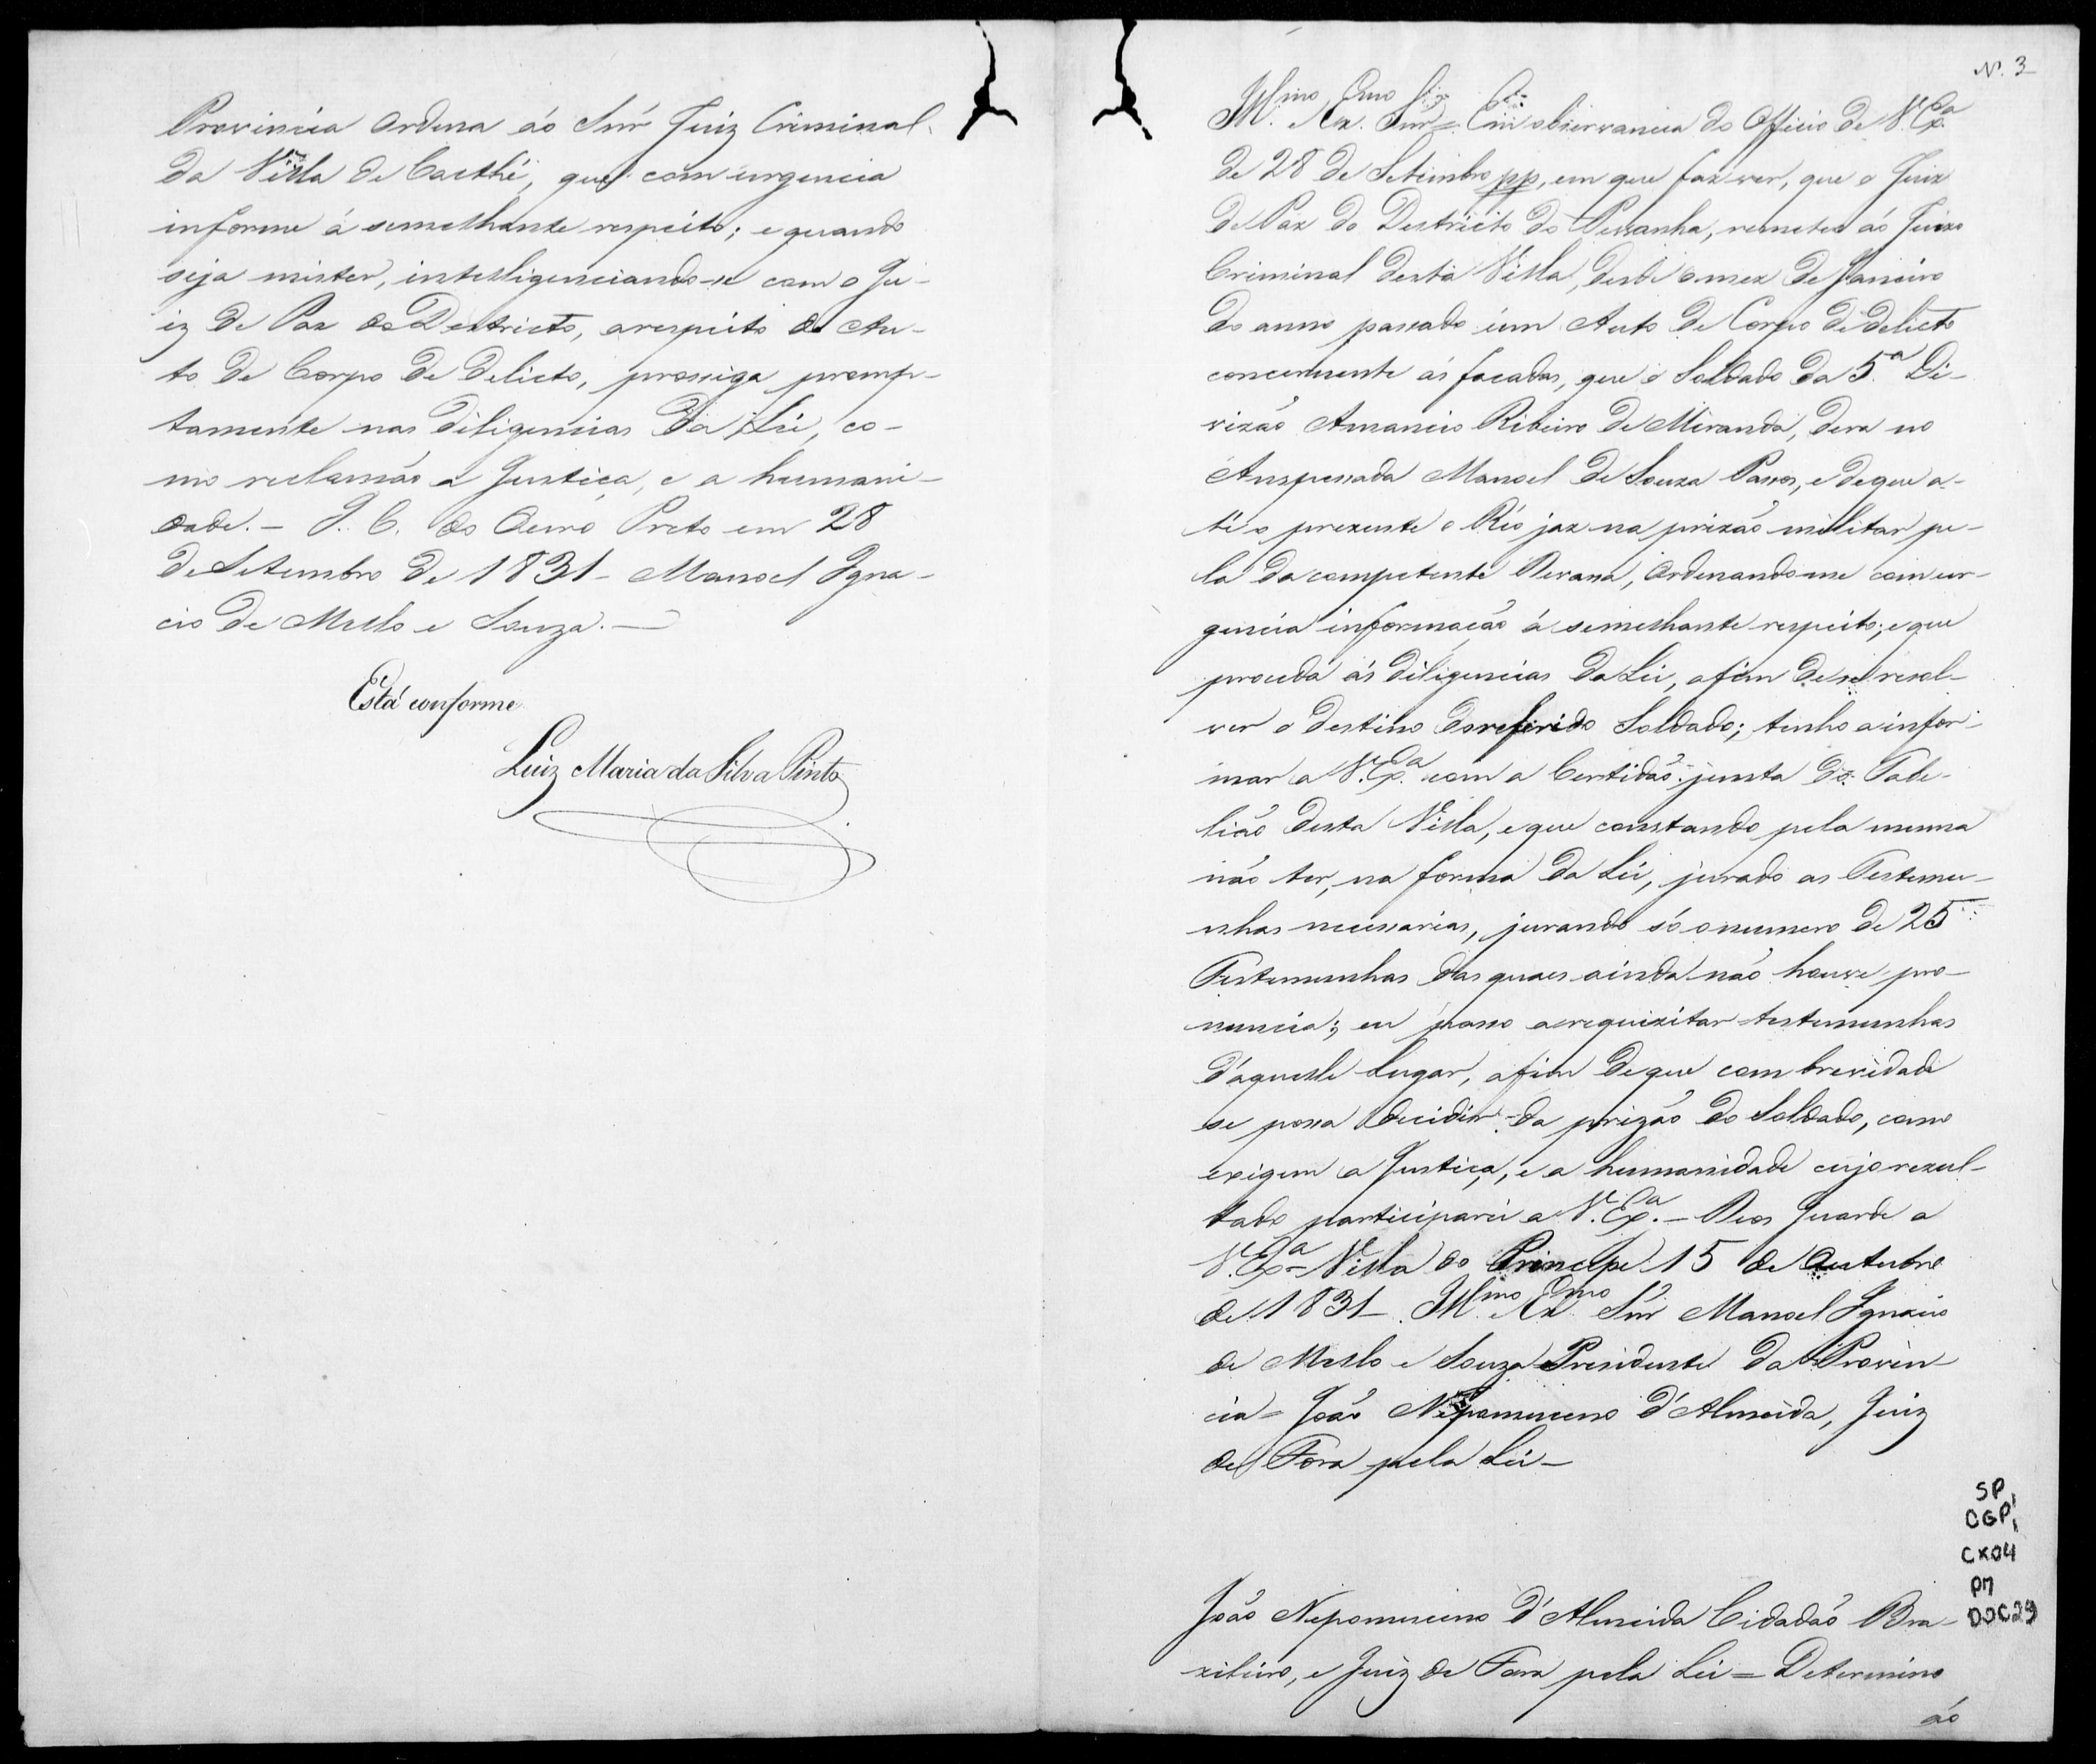 Provincia Ordena áo Snr Juiz Criminal
da Villa de Caethé, que com urgencia
informe á semelhante respeito; e quando
seja mister, intelligenciando-se com o Ju-
iz de Paz do Destricto, arespeito do Au-
to de Corpo de Delicto, prosiga promp-
tamente nas diligencias da Lei, co-
mo reclamão a Justiça, e a humani-
dade. - I. C. do Ouro Preto em 28
de Setembro de 1831 - Manoel Igna-
cio de Mello e Souza. -
Está conforme
Luiz Maria da Silva Pinto
N. 3
Ill.mo e Ex.mo Snr = Em observancia do Officio de V. Ex.a
de 28 de Setembro pp, em que faz ver, que o Juiz
de Paz do Destricto do Pessanha, remetteo áo Juizo
Criminal desta Villa, desde o mez de Janeiro
do anno passado um Auto de Corpo de delicto
concernente ás facadas, que o Soldado da 5.a Di-
vizão Amancio Ribeiro de Miranda, dera no
Anspessada Manoel de Souza Passos, e de que a-
té o prezente o Réo jaz na prizão militar pe-
la da competente Devassa, Ordenando-me com ur-
gencia informação á semelhante respeito; e que
proceda ás diligencias da Lei, afim de se resol-
ver o destino do referido Soldado; tenho a infor-
mar a V. Ex.a com a Certidão junta do Tabe-
lião desta Villa, e que constando pela mesma
não ter, na forma da Lei, jurado as Testemu-
nhas necessarias, jurando só o numero de 25
Testemunhas das quaes ainda não houve pro-
nuncia; eu passo a requizitar testemunhas
d'aquelle Lugar, afim de que com brevidade
se possa decidir da prizão do Soldado, como
exigem a Justiça, e a humanidade cujo rezul-
tado participarei a V. Ex.a - Deos Guarde a
V. Ex.a - Villa do Principe 15 de Outubro
de 1831 - Ill.mo e Ex.mo Snr Manoel Ignacio
de Mello e Souza Presidente da Provin-
cia = João Nepomuceno d'Almeida, Juiz
de Fora pela Lei -
SP
CGP1
CX04
PM
DOC29
João Nepomuceno d'Almeida Cidadão Bra-
zileiro, e Juiz de Fora pela Lei = Determino
áo